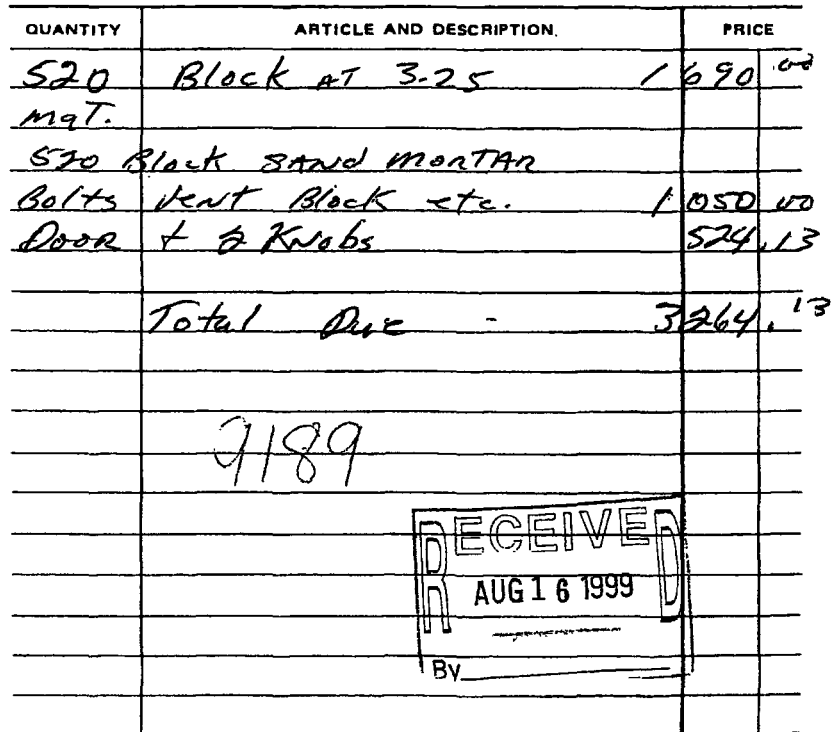 QUANTITY ARTICLE AND DESCRIPTION. PRICE
520 Block AT 3.25 1 690.00
mqT.
520 Block SAND MORTAR
Bolts Vent Block etc. 1 050 00
Door + 2 Knobs 524.13
Total Due - 3264.13
9189
RECEIVED
AUG 16 1999
By